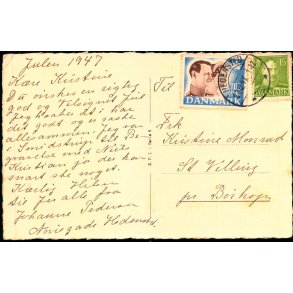 Julen 1947
Kære Kristine
Du ønskes en rigtig
god og Velsignet Jul
Jeg haabe at i har
det godt og er raske
allesammen. Jeg var
i Smidstrup til Be-
gravelse med Niels
Kristian ja de har
snart ske noget.
Kærlig Hilsen
til jer alle fra
Johanne Pedersen
Nørregade Hedensted
Til
DANMARK
15
DANMARK
Frk
Kristine Monrad
St Velling
pr Børkop